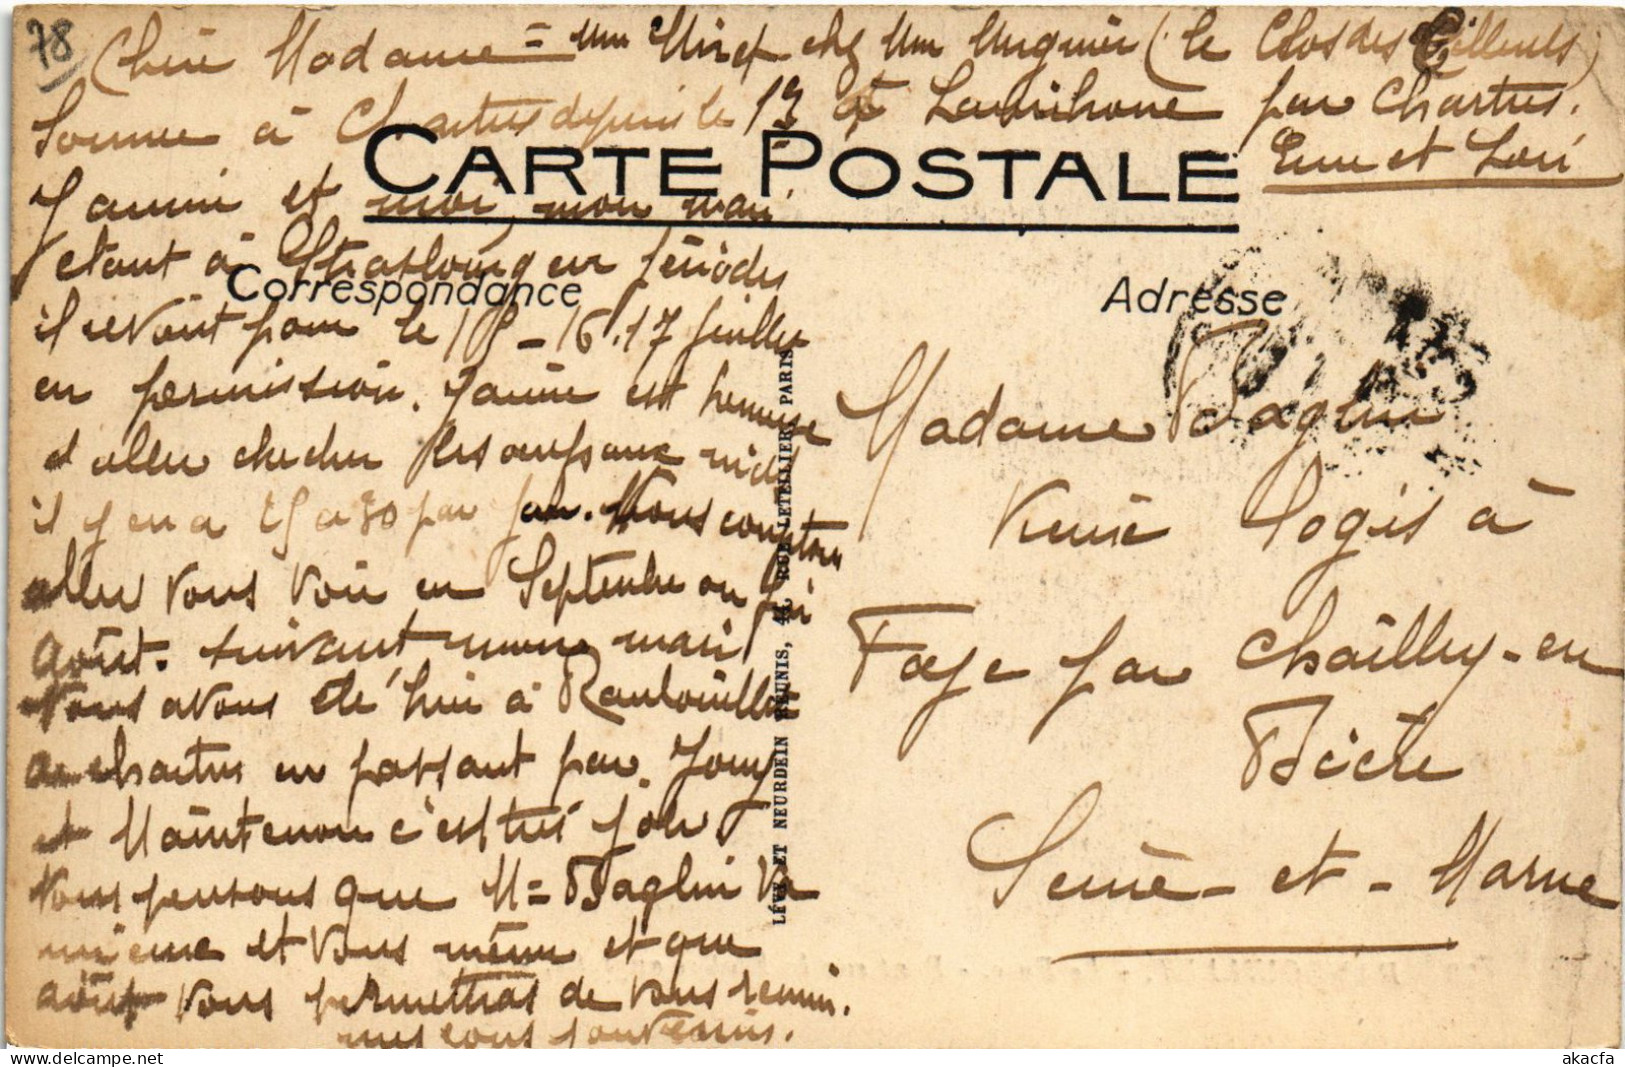 78
Chère Madame = Mme Miret chez Mme (le Clos des Œillets)
Somme à Chartres depuis le 13 à par Chartres.
Eure et Loir
CARTE POSTALE
Janine et moi, mon mari
etant à Strasbourg en périodes
Correspondance
il revient pour le 15 - 16.17 juillet
en permission. Janine est heureuse
d aller chercher les oeufs aux nids
il y en a 25 a 30 par jour. Nous comptons
aller vous voir en Septembre ou fin
Août. suivant mon mari
Nous avons été hier à Rambouillet
a chartres en passant par Jouy
et Maintenon c'est très joli
Nous pensons que M= Baglin va
mieux et vous même et que
août vous permettras de vous remir.
mes bons souvenirs.
LÉVY ET NEURDEIN RÉUNIS, 44, RUE LETELLIER, PARIS
Adresse
Madame Baglin
Logis à
Faÿe par Chailly-en
Bière
Seine-et-Marne
akacfa